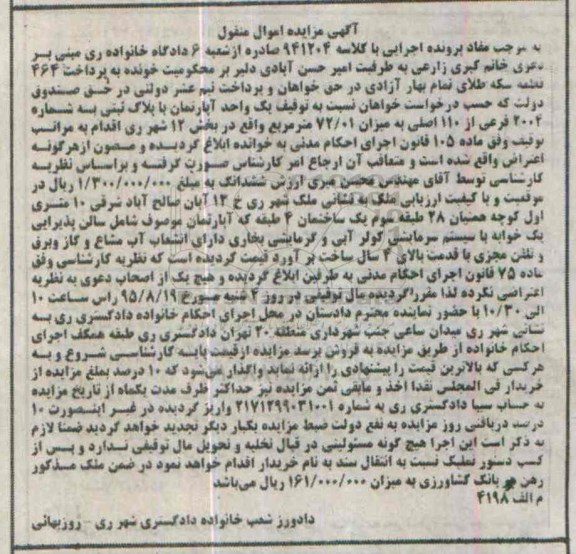 آگهی مزایده اموال منقول
به موجب مفاد پرونده اجرایی با کلاسه ۹۴۱۲۰۴ صادره ازشعبه ۶ دادگاه خانواده ری مبنی بر
دعوی خانم کبری زارعی به طرفیت امیر حسن آبادی دلیر بر محکومیت خونده به پرداخت ۴۶۴
قطعه سکه طلای تمام بهار آزادی در حق خواهان و پرداخت نیم عشر دولتی در حق صندوق
دولت که حسب درخواست خواهان نسبت به توقیف یک واحد آپارتمان با پلاک ثبتی به شماره
۲۰۰۴ فرعی از ۱۱۰ اصلی به میزان ۷۲/۰۱ مترمربع واقع در بخش ۱۲ شهر ری اقدام به مراتب
توقیف وفق ماده ۱۰۵ قانون اجرای احکام مدنی به خوانده ابلاغ گردیده و مصون ازهرگونه
اعتراض واقع شده است و متعاقب آن ارجاع امر کارشناس صورت گرفته و براساس نظریه
کارشناسی توسط آقای مهندس محسن میری ارزش ششدانگ به مبلغ ۱/۳۰۰/۰۰۰/۰۰۰ ریال در
موقعیت و با کیفیت ارزیابی ملک به نشانی ملک شهر ری خ ۱۳ آبان صالح آباد شرقی ۱۰ متری
اول کوچه همتیان ۲۸ طبقه سوم یک ساختمان ۴ طبقه که آپارتمان موصوف شامل سالن پذیرایی
یک خوابه با سیستم سرمایشی کولر آبی و گرمایشی بخاری دارای انشعاب آب مشاع و گاز وبرق
و تلفن مجزی با قدمت بالای ۴ سال ساخت بر آورد قیمت گردیده است که نظریه کارشناسی وفق
ماده ۷۵ قانون اجرای احکام مدنی به طرفین ابلاغ گردیده و هیچ یک از اصحاب دعوی به نظریه
اعتراضی نکرده لذا مقررگردیده مال توقیفی در روز ۲ شنبه مورخ ۹۵/۸/۱۹ راس ساعت ۱۰
الی ۱۰/۳۰ با حضور نماینده محترم دادستان در محل اجرای احکام خانواده دادگستری ری به
نشانی شهر ری میدان ساعی جنب شهرداری منطقه ۲۰ تهران دادگستری ری طبقه همکف اجرای
احکام خانواده از طریق مزایده به فروش برسد مزایده ازقیمت پایه کارشناسی شروع و به
هرکسی که بالاترین قیمت را پیشنهادی را ارائه نماید واگذار می‌شود که ۱۰ درصد بملغ مزایده از
خریدار فی المجلس نقدا اخذ و مابقی ثمن مزایده نیز حداکثر ظرف مدت یکماه از تاریخ مزایده
به حساب سیبا دادگستری ری به شماره ۲۱۷۱۲۹۹۰۳۱۰۰۱ واریز گردیده در غیر اینصورت ۱۰
درصد دریافتی روز مزایده به نفع دولت ضبط مزایده یکبار دیگر تجدید خواهد گردید ضمنا لازم
به ذکر است این اجرا هیچ گونه مسئولیتی در قبال تخلیه و تحویل مال توقیفی ندارد و پس از
کسب دستور تملیک نسبت به انتقال سند به نام خریدار اقدام خواهد نمود در ضمن ملک مذکور
رهن بانک کشاورزی به میزان ۱۶۱/۰۰۰/۰۰۰ ریال می‌باشد
م الف ۴۱۹۸
دادورز شعب خانواده دادگستری شهر ری - روزبهانی